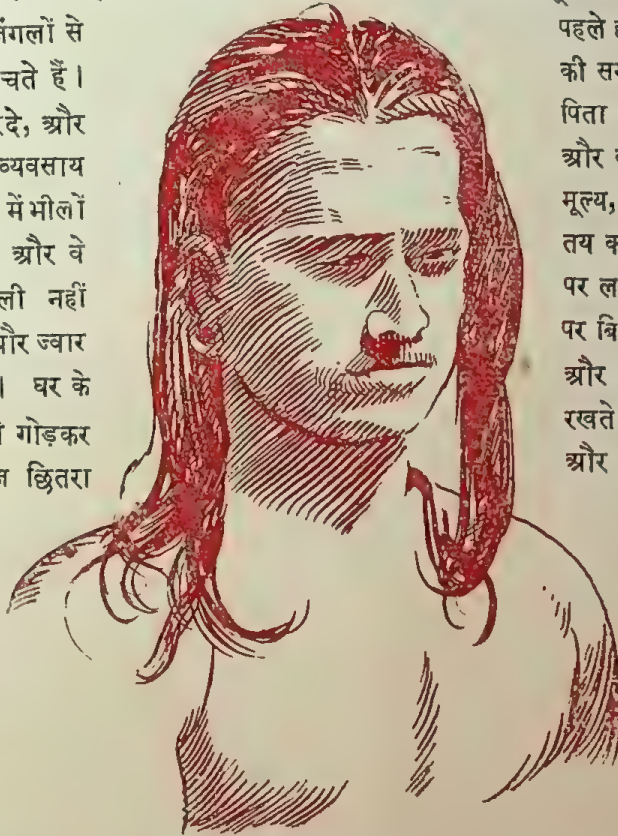 जंगलों से
चते हैं।
रदे, और
व्यवसाय
में भीलों
और वे
ली नहीं
और ज्वार
। घर के
गोड़कर
छितरा
पहले
की
पिता
और
मूल्य,
तय
पर
पर
और
रखते
और